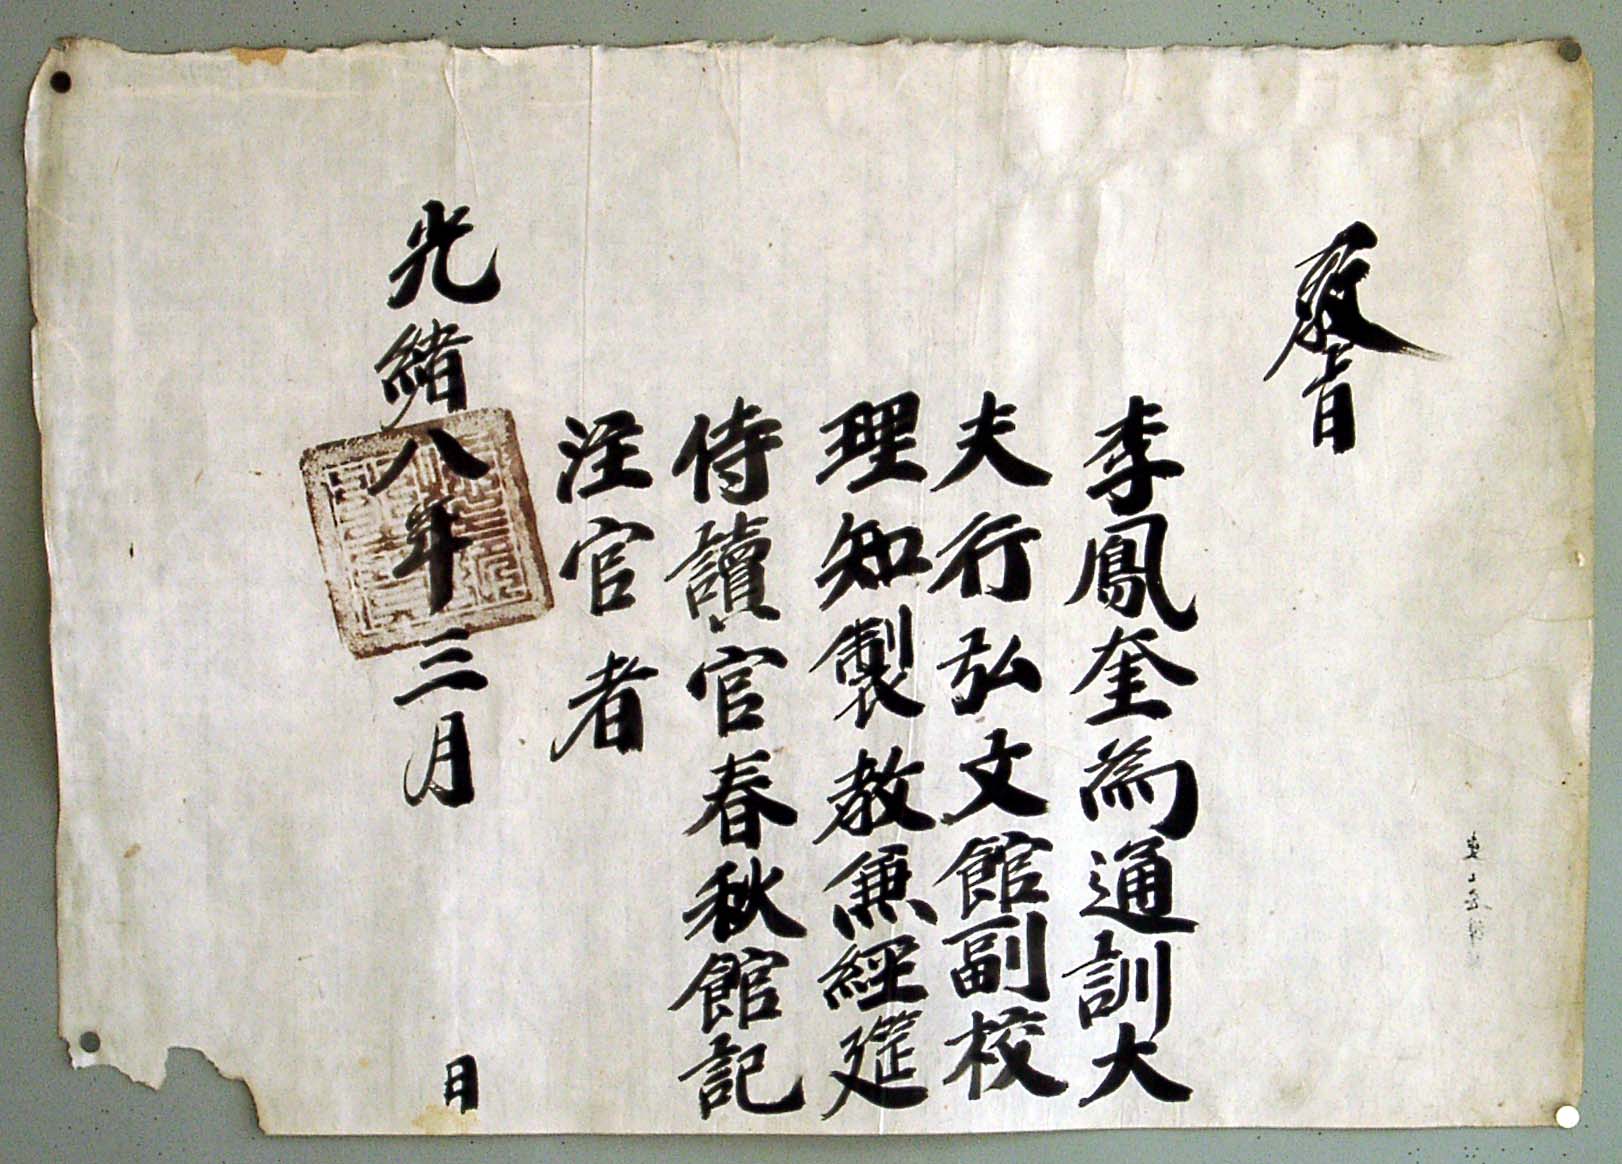 敎旨
李鳳奎為通訓大
夫行弘文館副校
理知製敎兼經筵
侍讀官春秋館記
注官者
光緖八年三月 日